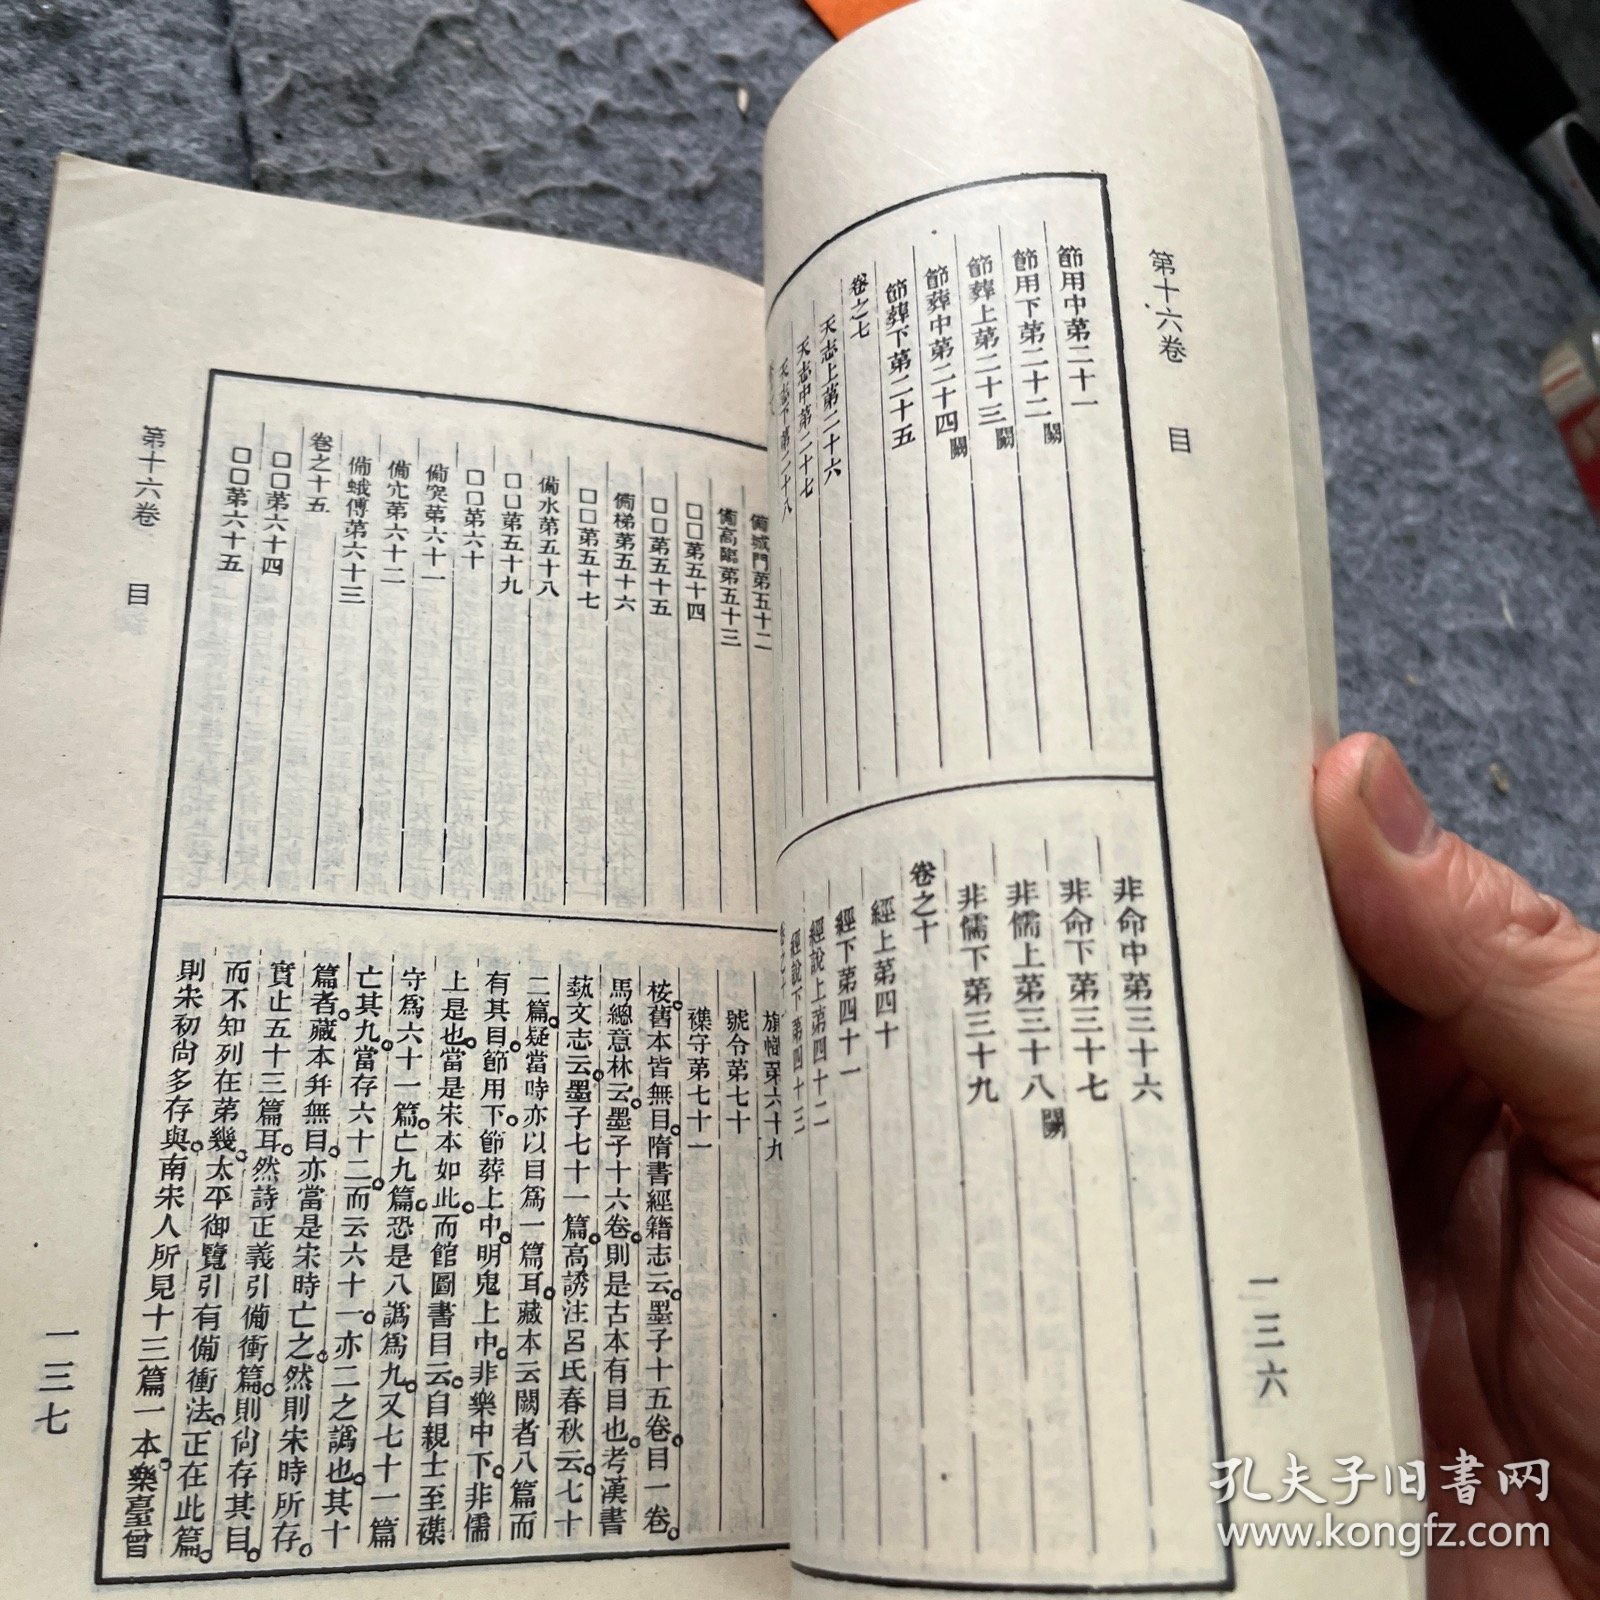 第十六卷 目
節用中第二十一
節用下第二十二 闕
節葬上第二十三 闕
節葬中第二十四 闕
節葬下第二十五
卷之七
天志上第二十六
天志中第二十七
天志下第二十八
非命中第三十六
非命下第三十七
非儒上第三十八 闕
非儒下第三十九
卷之十
經上第四十
經下第四十一
經說上第四十二
經說下第四十三
一三六
備城門第五十二
備高臨第五十三
□□第五十四
□□第五十五
備梯第五十六
□□第五十七
備水第五十八
□□第五十九
□□第六十
備突第六十一
備穴第六十二
備蛾傅第六十三
卷之十五
□□第六十四
□□第六十五
旗幟第六十九
號令第七十
襍守第七十一
桉。舊本皆無目。隋書經籍志云。墨子十五卷。目一卷。
馬總意林云。墨子十六卷。則是古本有目也。考漢書
蓺文志云。墨子七十一篇。高誘注呂氏春秋云。七十
二篇。疑當時亦以目爲一篇耳。藏本云闕者八篇而
有其目。節用下。節葬上中。明鬼上中。非樂中下。非儒
上是也。當是宋本如此。而館閣書目云。自親士至襍
守爲六十一篇。亡九篇。恐是八譌爲九。又七十一篇
亡其九。當存六十二。而云六十一。亦二之譌也。其十
篇者。藏本幷無目。亦當是宋時亡之。然則宋時所存
實止五十三篇耳。然詩正義引備衝篇。則尙存其目。
而不知列在第幾。太平御覽引有備衝法。正在此篇。
則宋初尙多存與。南宋人所見十三篇一本。樂臺曾
第十六卷 目
一三七
孔夫子旧书网
www.kongfz.com